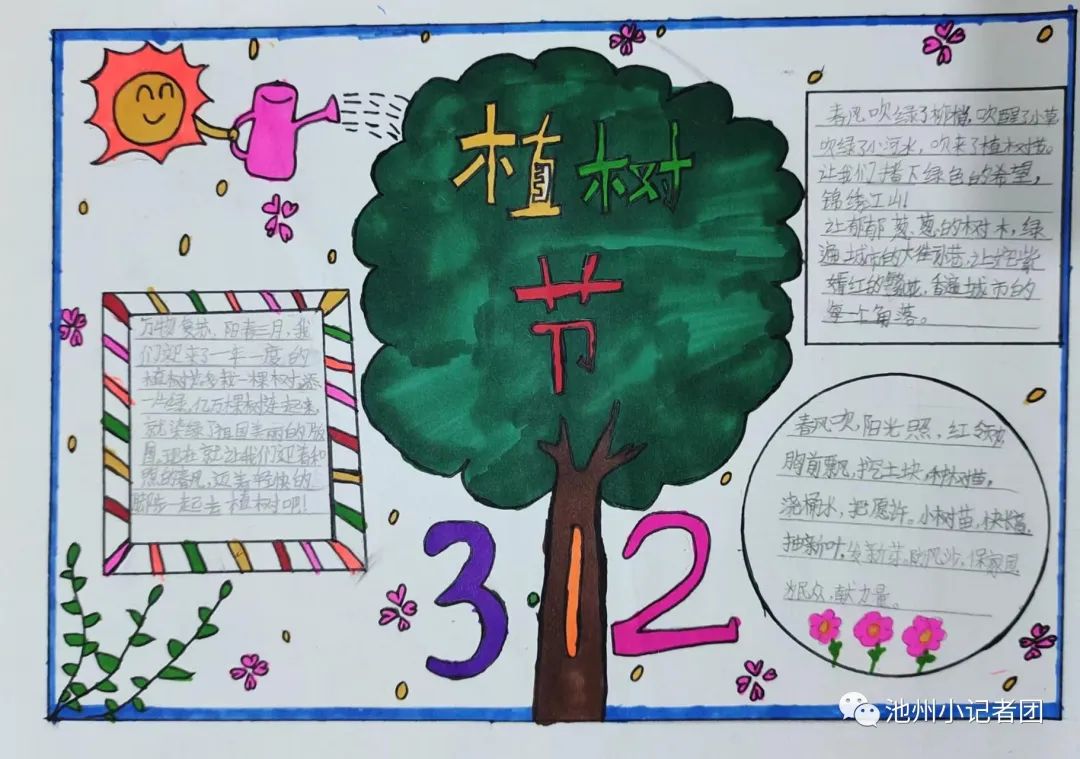 植树
节
3·12
万物复苏、阳春三月，我
们迎来了一年一度的
植树节多栽一棵树，添
一片绿，亿万棵树连起来，
就染绿了祖国美丽的版
图，现在就让我们迎着和
煦的春风，迈着轻快的
脚步一起去植树吧！
春风吹绿了柳梢，吹醒了小草
吹绿了小河水，吹来了植树苗。
让我们播下绿色的希望，
锦绣江山
让郁郁葱葱的树木，绿
遍城市的大街小巷，让姹紫
嫣红的繁花，香遍城市的
每一个角落。
春风吹，阳光照，红领巾
胸前飘，挖土块，种树苗，
浇桶水，把愿许。小树苗，快长高，
抽新叶，发新芽。防风沙，保家园
为民众，献力量。
池州小记者团